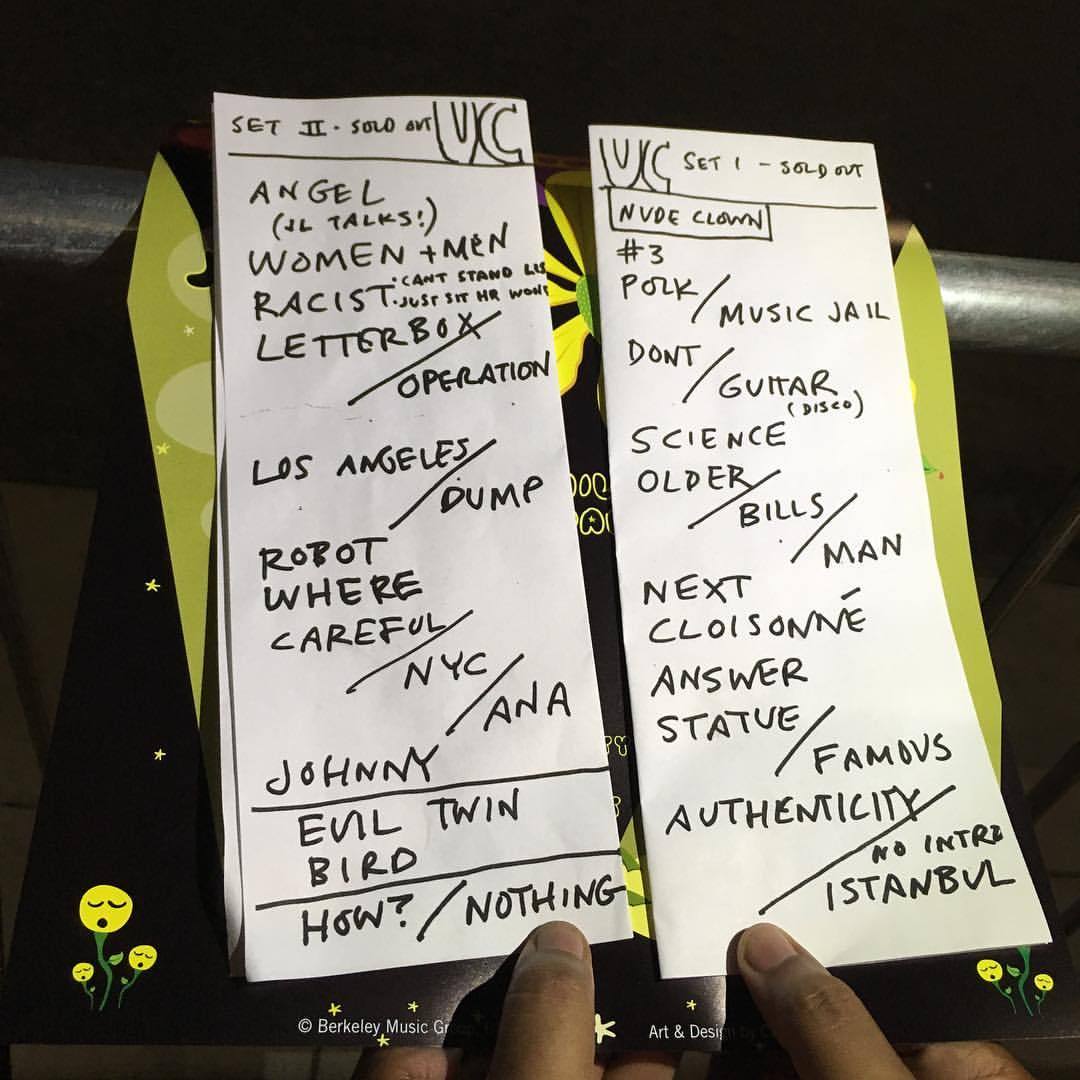 SET II - SOLD OUT UC
ANGEL
(JL TALKS!)
WOMEN + MEN
RACIST • CANT STAND
• JUST SIT HR
LETTERBOX
OPERATION
LOS ANGELES
DUMP
ROBOT
WHERE
CAREFUL
NYC
ANA
JOHNNY
EVIL TWIN
BIRD
HOW? / NOTHING
UC SET 1 - SOLD OUT
NUDE CLOWN
#3
PORK /
MUSIC JAIL
DONT /
GUITAR
(DISCO)
SCIENCE
OLDER
BILLS
MAN
NEXT
CLOISONNÉ
ANSWER
STATUE /
FAMOUS
AUTHENTICITY
NO INTRO
ISTANBUL
© Berkeley Music
Art & Design by